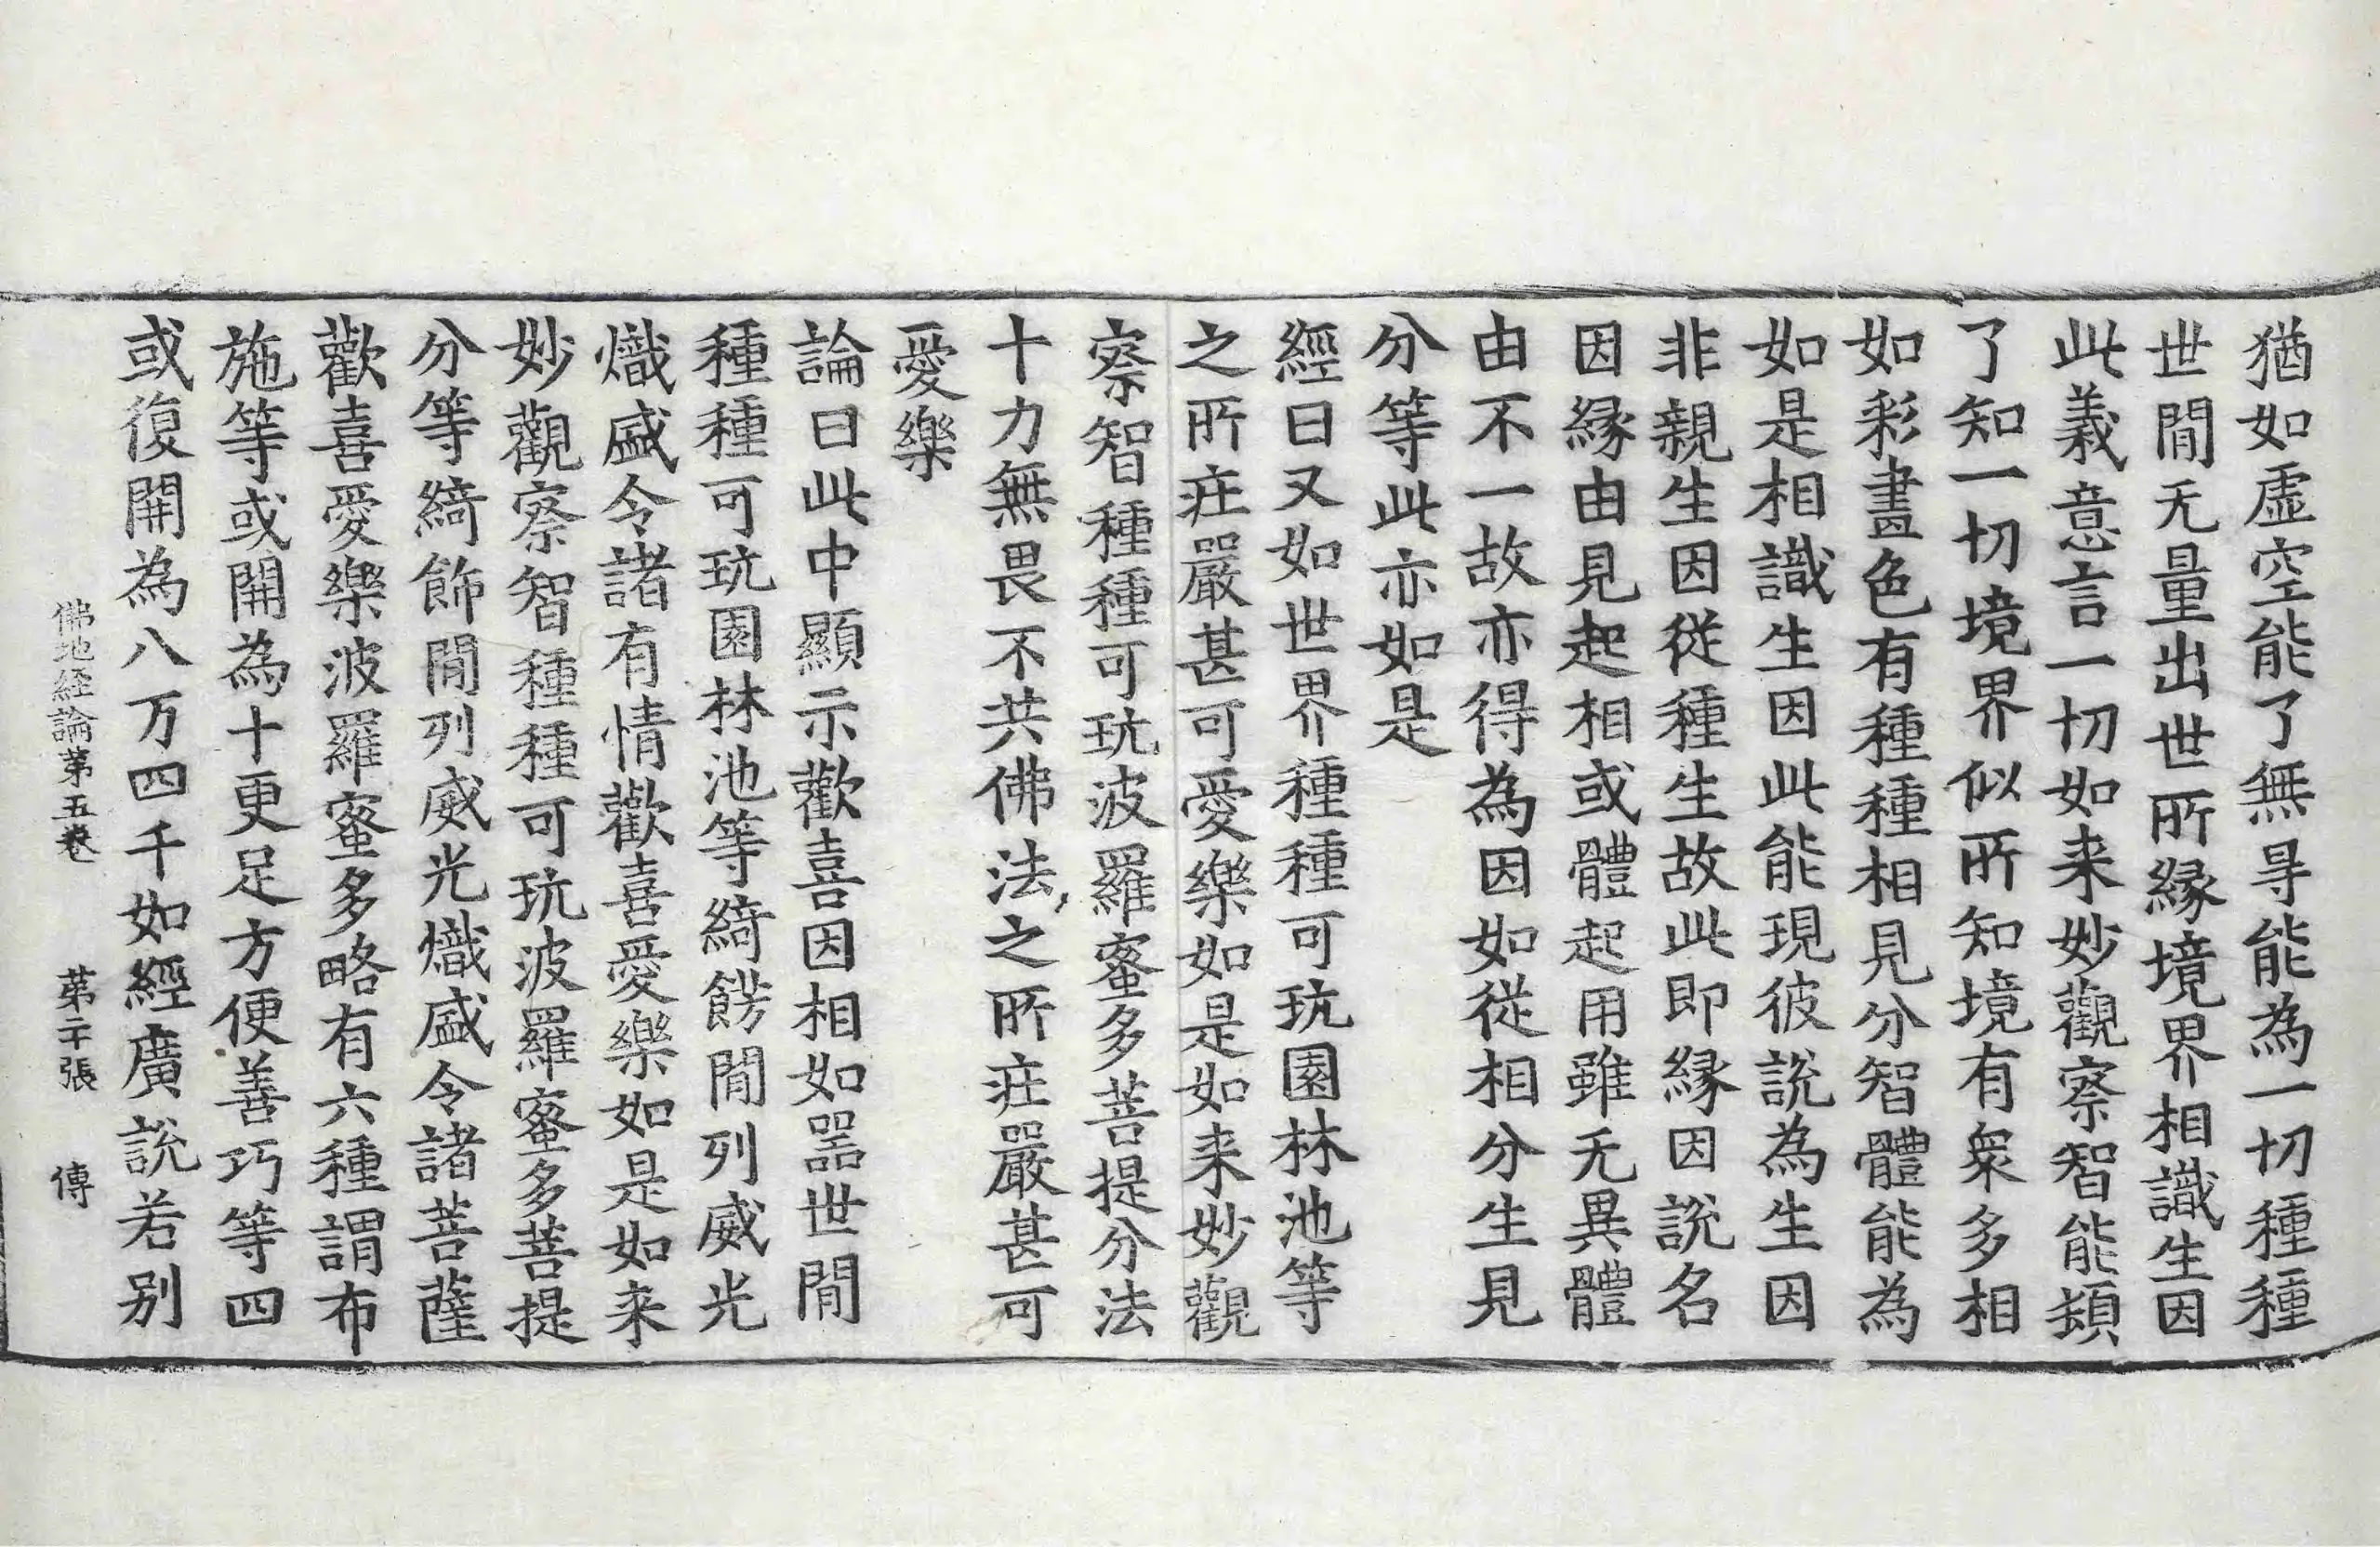 猶如虛空能了無㝵能為一切種種
世間无量出世所縁境界相識生因
此義意言一切如来妙觀察智能頓
了知一切境界似所知境有衆多相
如彩畫色有種種相見分智體能為
如是相識生因此能現彼說為生因
非親生因從種生故此即縁因說名
因縁由見起相或體起用雖无異體
由不一故亦得為因如從相分生見
分等此亦如是
經曰又如世界種種可玩園林池等
之所莊嚴甚可愛樂如是如来妙觀
察智種種可玩波羅蜜多菩提分法
十力無畏不共佛法之所莊嚴甚可
愛樂
論曰此中顯示歡喜因相如器世間
種種可玩園林池等綺飾間列威光
熾盛令諸有情歡喜愛樂如是如来
妙觀察智種種可玩波羅蜜多菩提
分等綺飾間列威光熾盛令諸菩薩
歡喜愛樂波羅蜜多略有六種謂布
施等或開為十更足方便善巧等四
或復開為八万四千如經廣說若别
佛地経論苐五卷 苐二十張 傳